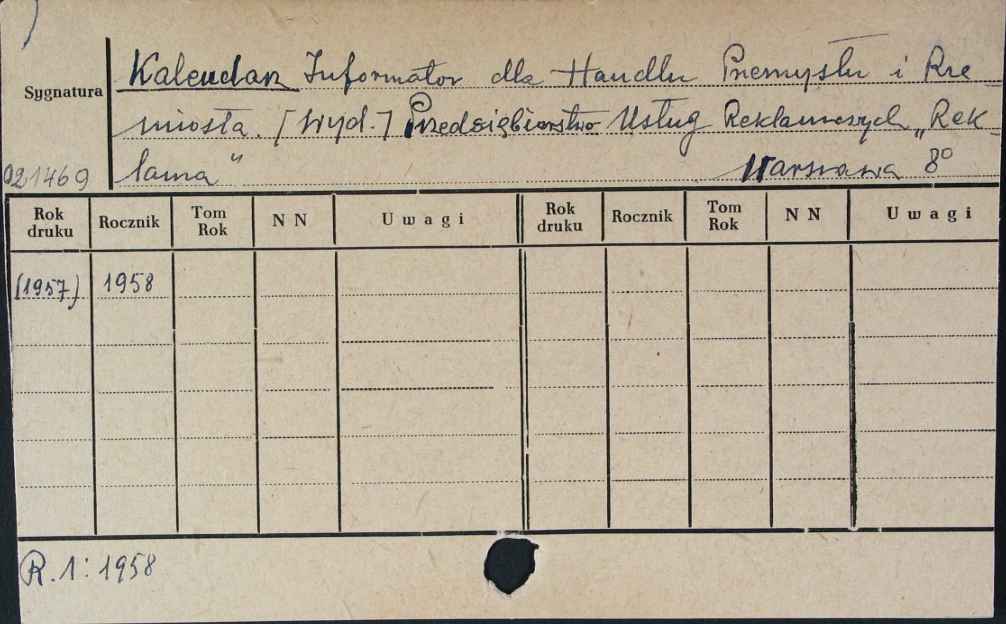 Kalendarz Informator dla Handlu Przemysłu i Rze
Sygnatura
miosła. [Wyd.] Przedsiębiorstwo Usług Reklamowych „Rek-
021469 lama" Warszawa 8°
Rok druku Rocznik Tom Rok NN Uwagi Rok druku Rocznik Tom Rok NN Uwagi
(1957) 1958
R. 1: 1958